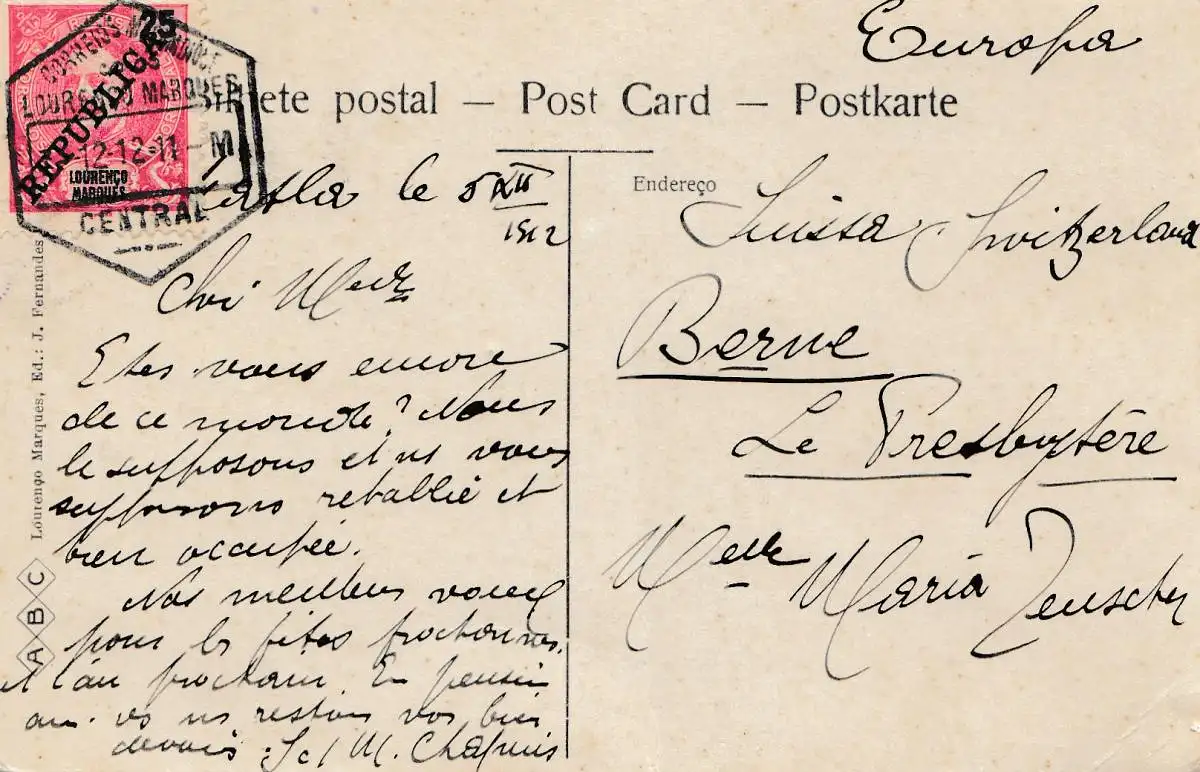 Europa
25
REPUBLICA
LOURENÇO
MARQUES
CORREIOS
LOURENÇO MARQUES
12-12-11-M
CENTRAL
Bilhete postal — Post Card — Postkarte
le 5 XII
1912
Endereço
Suissa Switzerland
Berne
Le Presbytère
Melle Maria
Lourenço Marques, Ed.: J. Fernandes
A B C
Etes vous encore
de ce monde? Nous
le supposons et ns vous
supposons rétablie et
bien occupée.
Nos meilleurs voeux
pour les fêtes prochaines
et l'an prochain. En pensée
vs ns restons vos bien
S et M. Chapuis